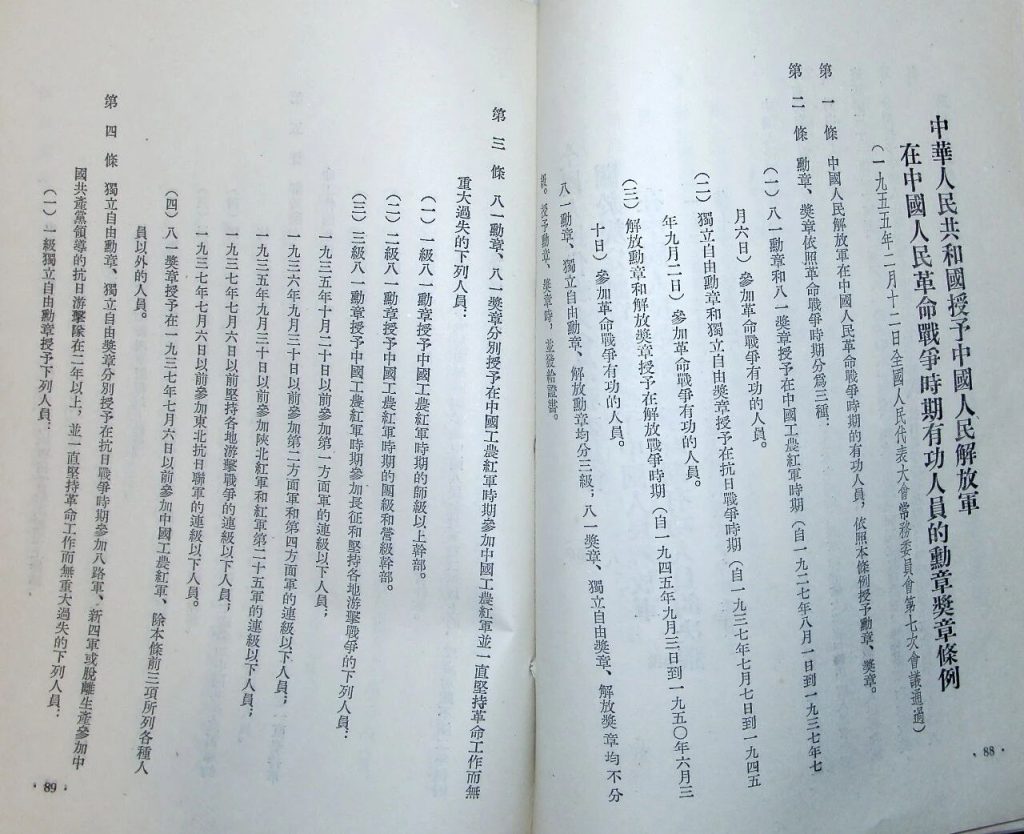 中華人民共和國授予中國人民解放軍
在中國人民革命戰爭時期有功人員的勳章奬章條例
（一九五五年二月十二日全國人民代表大會常務委員會第七次會議通過）
第一條　中國人民解放軍在中國人民革命戰爭時期的有功人員，依照本條例授予勳章、奬章。
第二條　勳章、奬章依照革命戰爭時期分為三種：
（一）八一勳章和八一奬章授予在中國工農紅軍時期（自一九二七年八月一日到一九三七年七
月六日）參加革命戰爭有功的人員。
（二）獨立自由勳章和獨立自由奬章授予在抗日戰爭時期（自一九三七年七月七日到一九四五
年九月二日）參加革命戰爭有功的人員。
（三）解放勳章和解放奬章授予在解放戰爭時期（自一九四五年九月三日到一九五〇年六月三
十日）參加革命戰爭有功的人員。
八一勳章、獨立自由勳章、解放勳章均分三級；八一奬章、獨立自由奬章、解放奬章均不分
級。授予勳章、奬章時，並發給證書。
· 88 ·
第三條　八一勳章、八一奬章分別授予在中國工農紅軍時期參加中國工農紅軍並一直堅持革命工作而無
重大過失的下列人員：
（一）一級八一勳章授予中國工農紅軍時期的師級以上幹部。
（二）二級八一勳章授予中國工農紅軍時期的團級和營級幹部。
（三）三級八一勳章授予中國工農紅軍時期參加長征和堅持各地游擊戰爭的下列人員：
一九三五年十月二十日以前參加第一方面軍的連級以下人員；
一九三六年九月三十日以前參加第二方面軍和第四方面軍的連級以下人員；
一九三五年九月三十日以前參加陝北紅軍和紅軍第二十五軍的連級以下人員；
一九三七年七月六日以前堅持各地游擊戰爭的連級以下人員；
一九三七年七月六日以前參加東北抗日聯軍的連級以下人員。
（四）八一奬章授予在一九三七年七月六日以前參加中國工農紅軍、除本條前三項所列各種人
員以外的人員。
第四條　獨立自由勳章、獨立自由奬章分別授予在抗日戰爭時期參加八路軍、新四軍或脫離生產參加中
國共產黨領導的抗日游擊隊在二年以上，並一直堅持革命工作而無重大過失的下列人員：
（一）一級獨立自由勳章授予下列人員：
· 89 ·